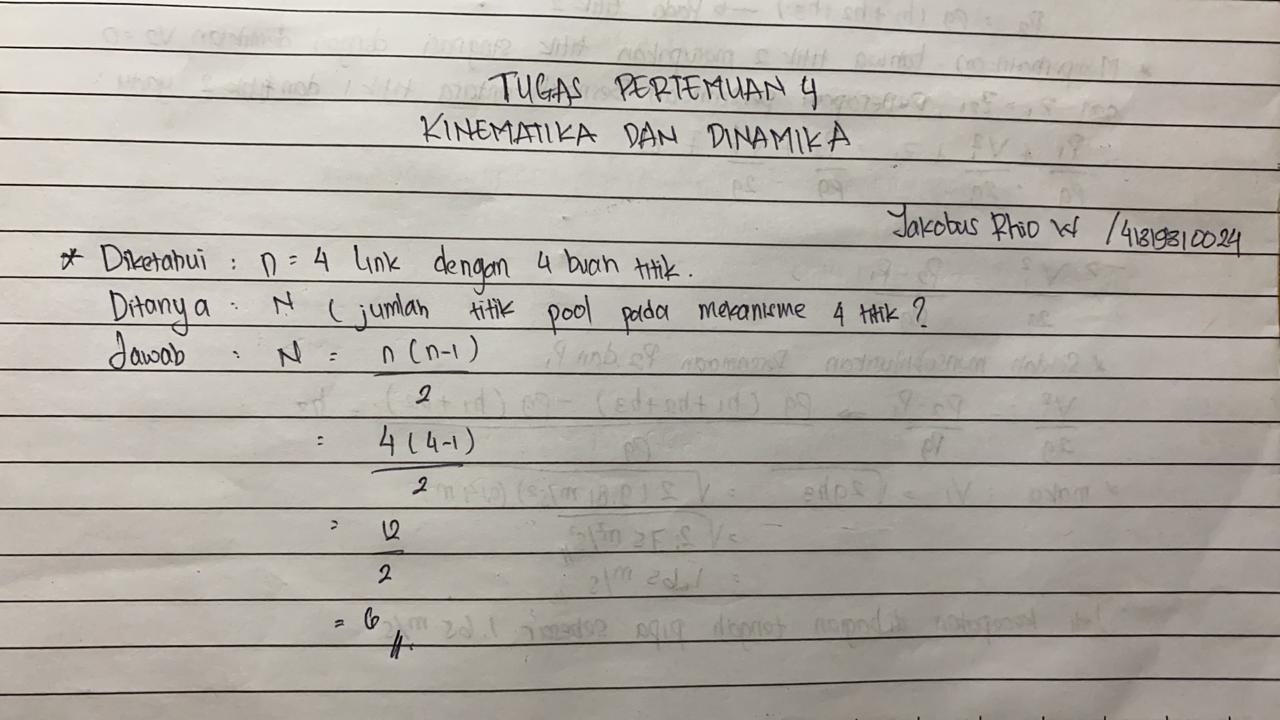 TUGAS PERTEMUAN 4
KINEMATIKA DAN DINAMIKA
Jakobus Rhio W /41319310024
* Diketahui : n = 4 link dengan 4 buah titik.
Ditanya : N ( jumlah titik pool pada mekanisme 4 titik ?
Jawab : N = n(n-1)
2
= 4(4-1)
2
= 12
2
= 6 //.